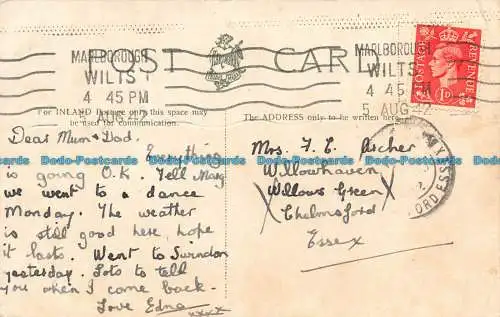 POST CARD
MARLBOROUGH
WILTS
4 45 PM
5 AUG 42
MARLBOROUGH
WILTS
4 45 PM
5 AUG 42
POSTAGE REVENUE
1D
For INLAND Postage only this space may
be used for communication.
The ADDRESS only to be written here
Dear Mum & Dad.
Everything
is going O.K. Tell Marg
we went to a dance
Monday. The weather
is still good here, hope
it lasts. Went to Swindon
yesterday. Lots to tell
you when I come back.
Love Edna
xxxx
Mrs. F. E. Archer
Willowhaven
Willows Green
Chelmsford
Essex
Dodo-Postcards Dodo-Postcards Dodo-Postcards Dodo-Postcards Dodo-Postcards
Dodo-Postcards Dodo-Postcards Dodo-Postcards Dodo-Postcards Dodo-Postcards